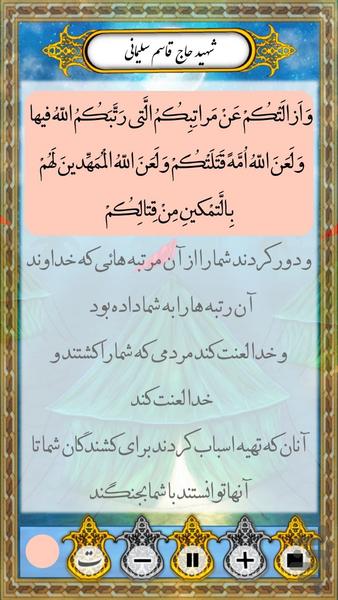 شهید حاج قاسم سلیمانی
وَ اَزالَتْكُمْ عَنْ مَراتِبِكُمُ الَّتی رَتَّبَكُمُ اللّهُ فیها
وَ لَعَنَ اللّهُ اُمَّةً قَتَلَتْكُمْ وَ لَعَنَ اللّهُ الْمُمَهِّدینَ لَهُمْ
بِالَّتمْكینِ مِنْ قِتالِكُمْ
و دور کردند شما را از آن مرتبه هائی که خداوند
آن رتبه ها را به شما داده بود
و خدا لعنت کند مردمی که شما را کشتند و
خدا لعنت کند
آنان که تهیه اسباب کردند برای کشندگان شما تا
آنها توانستند با شما بجنگند
ت